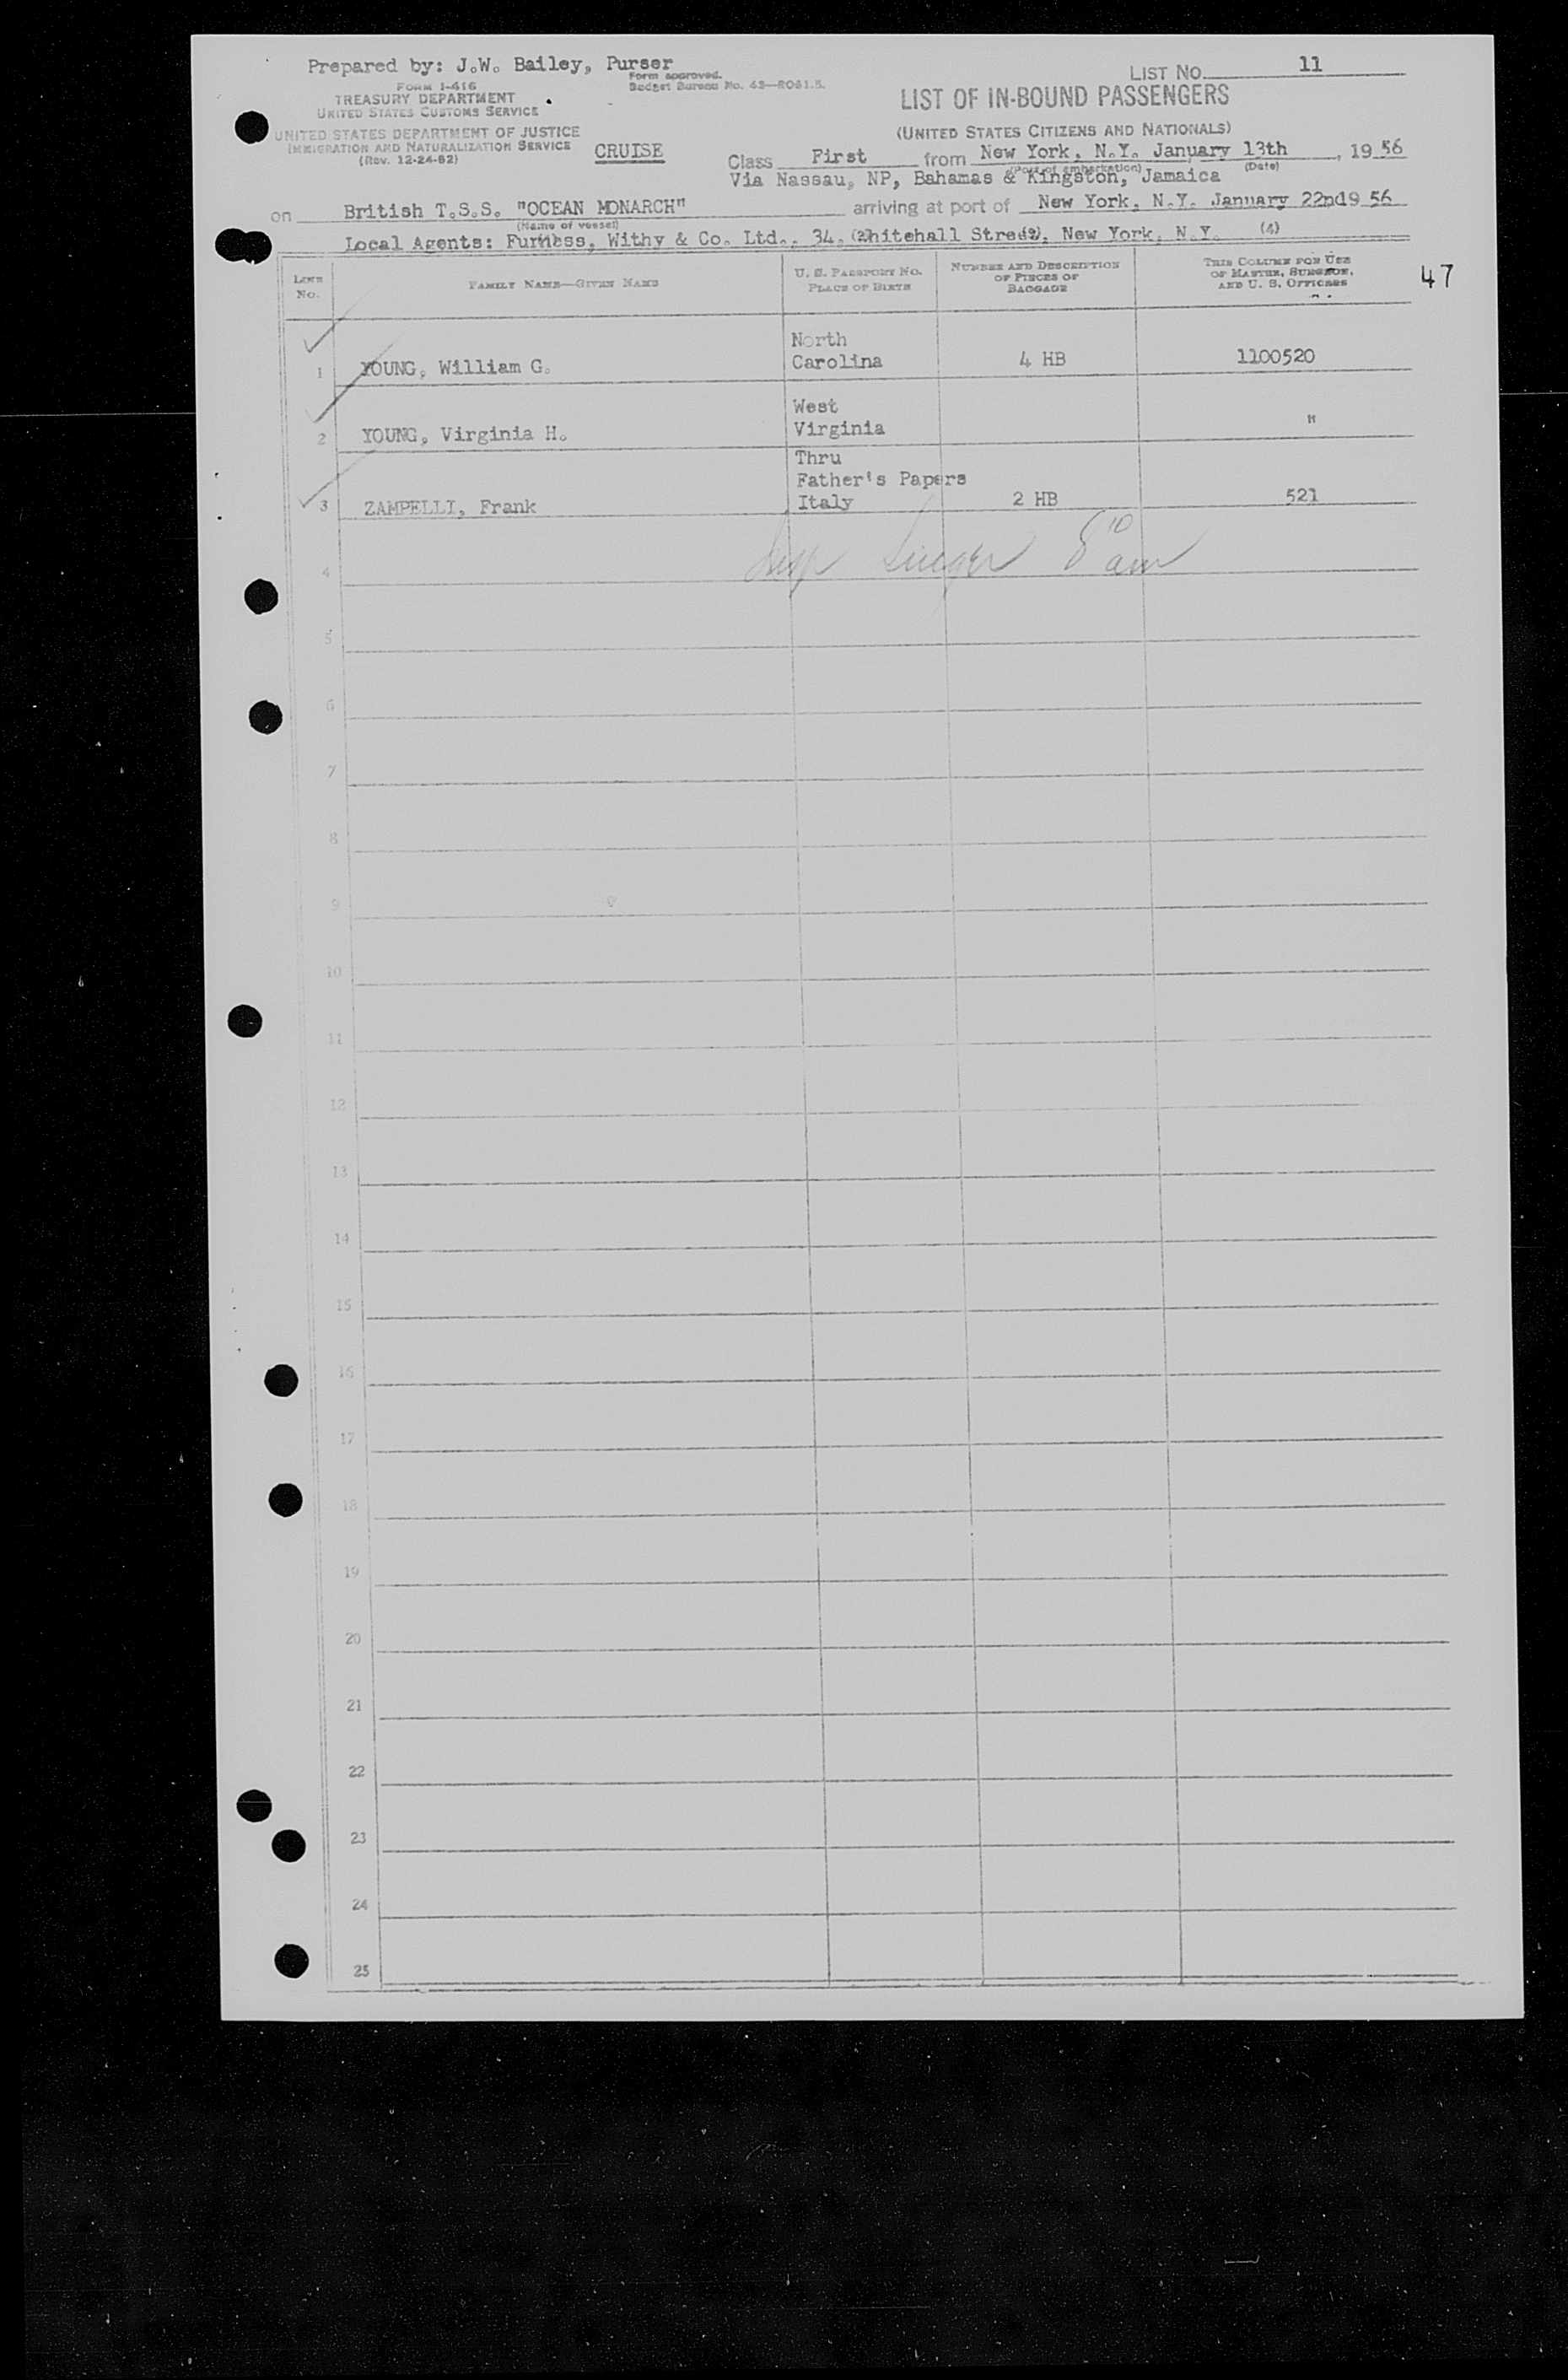 Prepared by: J.W. Bailey, Purser
Form approved.
Budget Bureau No. 43—R061.5.
LIST NO. 11
FORM I-416
TREASURY DEPARTMENT
UNITED STATES CUSTOMS SERVICE
LIST OF IN-BOUND PASSENGERS
UNITED STATES DEPARTMENT OF JUSTICE
IMMIGRATION AND NATURALIZATION SERVICE
(Rev. 12-24-52)
CRUISE
(UNITED STATES CITIZENS AND NATIONALS)
Class First from New York, N.Y. January 13th, 19 56
(Port of embarkation) (Date)
Via Nassau, NP, Bahamas & Kingston, Jamaica
on British T.S.S. "OCEAN MONARCH" arriving at port of New York, N.Y. January 22nd 19 56
(Name of vessel)
Local Agents: Furness, Withy & Co. Ltd., 34, Whitehall Street, New York, N.Y.
(1) (2) (3) (4)
LINE No.
FAMILY NAME—GIVEN NAME
U. S. PASSPORT NO.
PLACE OF BIRTH
NUMBER AND DESCRIPTION OF PIECES OF BAGGAGE
THIS COLUMN FOR USE OF MASTER, SURGEON, AND U. S. OFFICERS
47
1 YOUNG, William G. North Carolina 4 HB 1100520
2 YOUNG, Virginia H. West Virginia "
3 ZAMPELLI, Frank Thru Father's Papers Italy 2 HB 521
4
5
6
7
8
9
10
11
12
13
14
15
16
17
18
19
20
21
22
23
24
25